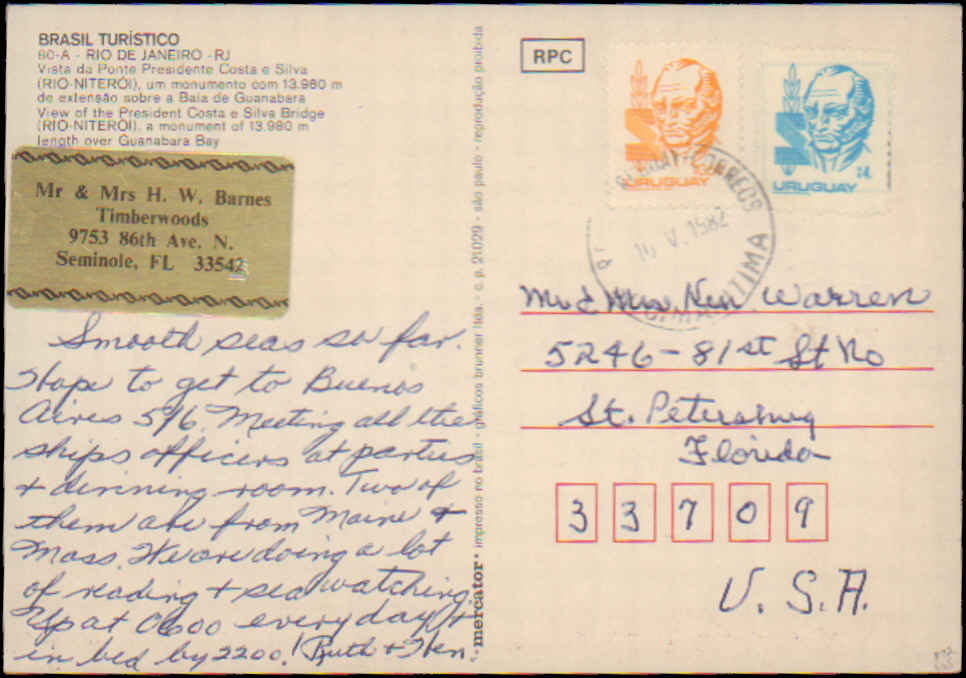 BRASIL TURÍSTICO
80-A - RIO DE JANEIRO - RJ
Vista da Ponte Presidente Costa e Silva
(RIO-NITERÓI), um monumento com 13.980 m
de extensão sobre a Baía de Guanabara
View of the President Costa e Silva Bridge
(RIO-NITERÓI), a monument of 13.980 m
length over Guanabara Bay
Mr & Mrs H. W. Barnes
Timberwoods
9753 86th Ave. N.
Seminole, FL 33542
Smooth seas so far.
Hope to get to Buenos
Aires 5/16. Meeting all the
ships officers at parties
+ dinning room. Two of
them are from Maine +
Mass. We are doing a lot
of reading + sea watching.
Up at 0600 every day +
in bed by 2200! Ruth + Hen
mercator • impresso no brasil - gráficos brunner ltda. - c. p. 21.029 - são paulo - reprodução proibida
RPC
URUGUAY
URUGUAY
CORREOS
V. 1982
MARITIMA
Mr & Mrs Ken Warren
5246-81st St No
St. Petersburg
Florida
33709
U.S.A.